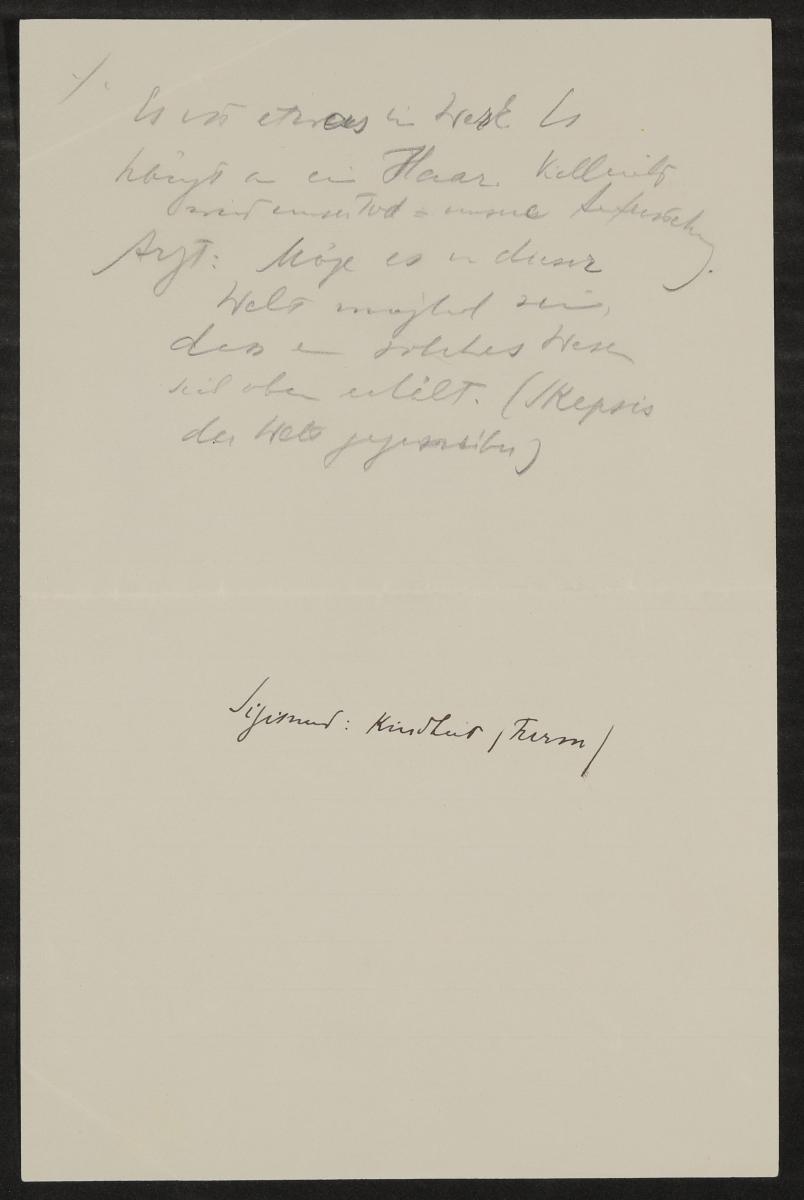 ./.
Es ist etwas im Werk Es
hängt an ein Haar. Vielleicht
wird unser Tod = unsere Auferstehung.
Arzt: Möge es in dieser
Welt möglich sein,
dass ein solches Wesen
sich oben erhält. (Skepsis
der Welt gegenüber)
Sigismund: Kindheit / Turm /